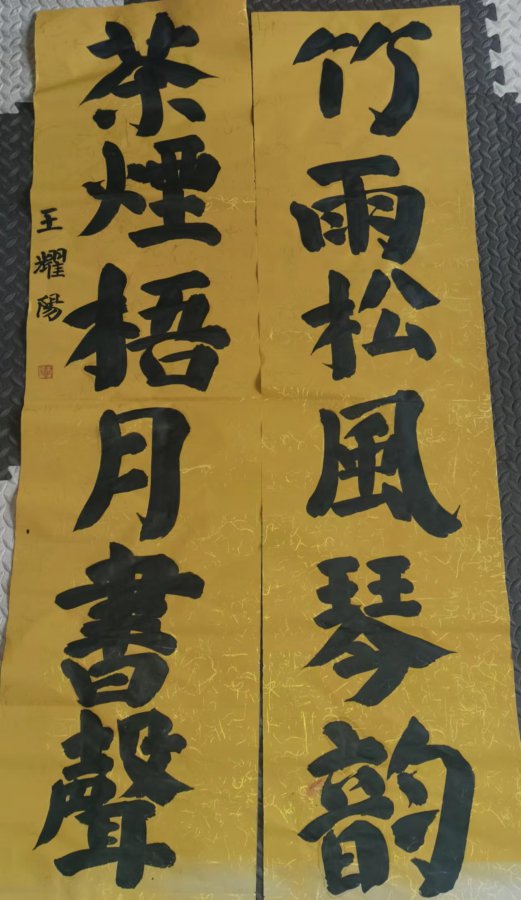 竹雨松風琴韵
茶煙梧月書聲
王耀陽